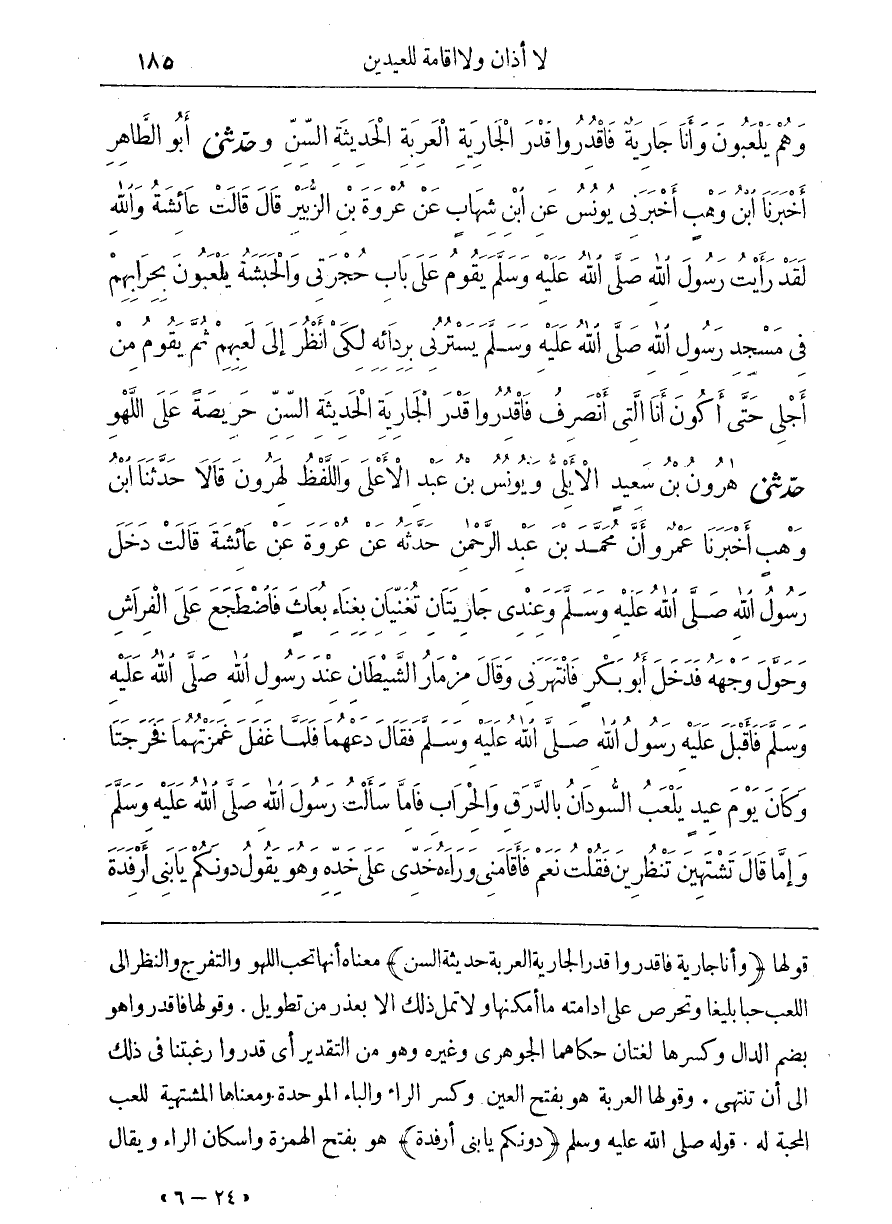 لا أذان ولا اقامة للعيدين ١٨٥
وَهُمْ يَلْعَبُونَ وَأَنَا جَارِيَةٌ فَاقْدُرُوا قَدْرَ الْجَارِيَةِ الْعَرِبَةِ الْحَدِيثَةِ السِّنِّ وحدّثنى أَبُو الطَّاهِرِ
أَخْبَرَنَا ابْنُ وَهْبٍ أَخْبَرَنِى يُونُسُ عَنِ ابْنِ شِهَابٍ عَنْ عُرْوَةَ بْنِ الزُّبَيْرِ قَالَ قَالَتْ عَائِشَةُ وَاللهِ
لَقَدْ رَأَيْتُ رَسُولَ اللهِ صَلَّى اللهُ عَلَيْهِ وَسَلَّمَ يَقُومُ عَلَى بَابِ حُجْرَتِى وَالْحَبَشَةُ يَلْعَبُونَ بِحِرَابِهِمْ
فِى مَسْجِدِ رَسُولِ اللهِ صَلَّى اللهُ عَلَيْهِ وَسَلَّمَ يَسْتُرُنِى بِرِدَائِهِ لِكَىْ أَنْظُرَ إِلَى لَعِبِهِمْ ثُمَّ يَقُومُ مِنْ
أَجْلِى حَتَّى أَكُونَ أَنَا الَّتِى أَنْصَرِفُ فَاقْدُرُوا قَدْرَ الْجَارِيَةِ الْحَدِيثَةِ السِّنِّ حَرِيصَةً عَلَى اللَّهْوِ
حدّثنى هٰرُونُ بْنُ سَعِيدٍ الْأَيْلِىُّ وَيُونُسُ بْنُ عَبْدِ الْأَعْلَى وَاللَّفْظُ لِهَرُونَ قَالَا حَدَّثَنَا ابْنُ
وَهْبٍ أَخْبَرَنَا عَمْرٌو أَنَّ مُحَمَّدَ بْنَ عَبْدِ الرَّحْمٰنِ حَدَّثَهُ عَنْ عُرْوَةَ عَنْ عَائِشَةَ قَالَتْ دَخَلَ
رَسُولُ اللهِ صَلَّى اللهُ عَلَيْهِ وَسَلَّمَ وَعِنْدِى جَارِيَتَانِ تُغَنِّيَانِ بِغِنَاءِ بُعَاثٍ فَاضْطَجَعَ عَلَى الْفِرَاشِ
وَحَوَّلَ وَجْهَهُ فَدَخَلَ أَبُو بَكْرٍ فَانْتَهَرَنِى وَقَالَ مِزْمَارُ الشَّيْطَانِ عِنْدَ رَسُولِ اللهِ صَلَّى اللهُ عَلَيْهِ
وَسَلَّمَ فَأَقْبَلَ عَلَيْهِ رَسُولُ اللهِ صَلَّى اللهُ عَلَيْهِ وَسَلَّمَ فَقَالَ دَعْهُمَا فَلَمَّا غَفَلَ غَمَزْتُهُمَا فَخَرَجَتَا
وَكَانَ يَوْمَ عِيدٍ يَلْعَبُ السُّودَانُ بِالدَّرَقِ وَالْحِرَابِ فَإِمَّا سَأَلْتُ رَسُولَ اللهِ صَلَّى اللهُ عَلَيْهِ وَسَلَّمَ
وَإِمَّا قَالَ تَشْتَهِينَ تَنْظُرِينَ فَقُلْتُ نَعَمْ فَأَقَامَنِى وَرَاءَهُ خَدِّى عَلَى خَدِّهِ وَهُوَ يَقُولُ دُونَكُمْ يَابَنِى أَرْفَدَةَ
قولها ﴿وأنا جارية فاقدروا قدر الجارية العربة حديثة السن﴾ معناه أنها تحب اللهو والتفرج والنظر الى
اللعب حبا بليغا وتحرص على ادامته ما أمكنها ولا تمل ذلك الا بعذر من تطويل . وقولها فاقدروا هو
بضم الدال وكسرها لغتان حكاهما الجوهرى وغيره وهو من التقدير أى قدروا رغبتنا فى ذلك
الى أن تنتهى . وقولها العربة هو بفتح العين وكسر الراء والباء الموحدة ومعناها المشتهية للعب
المحبة له . قوله صلى الله عليه وسلم ﴿دونكم يابنى أرفدة﴾ هو بفتح الهمزة واسكان الراء ويقال
«٢٤ — ٦»